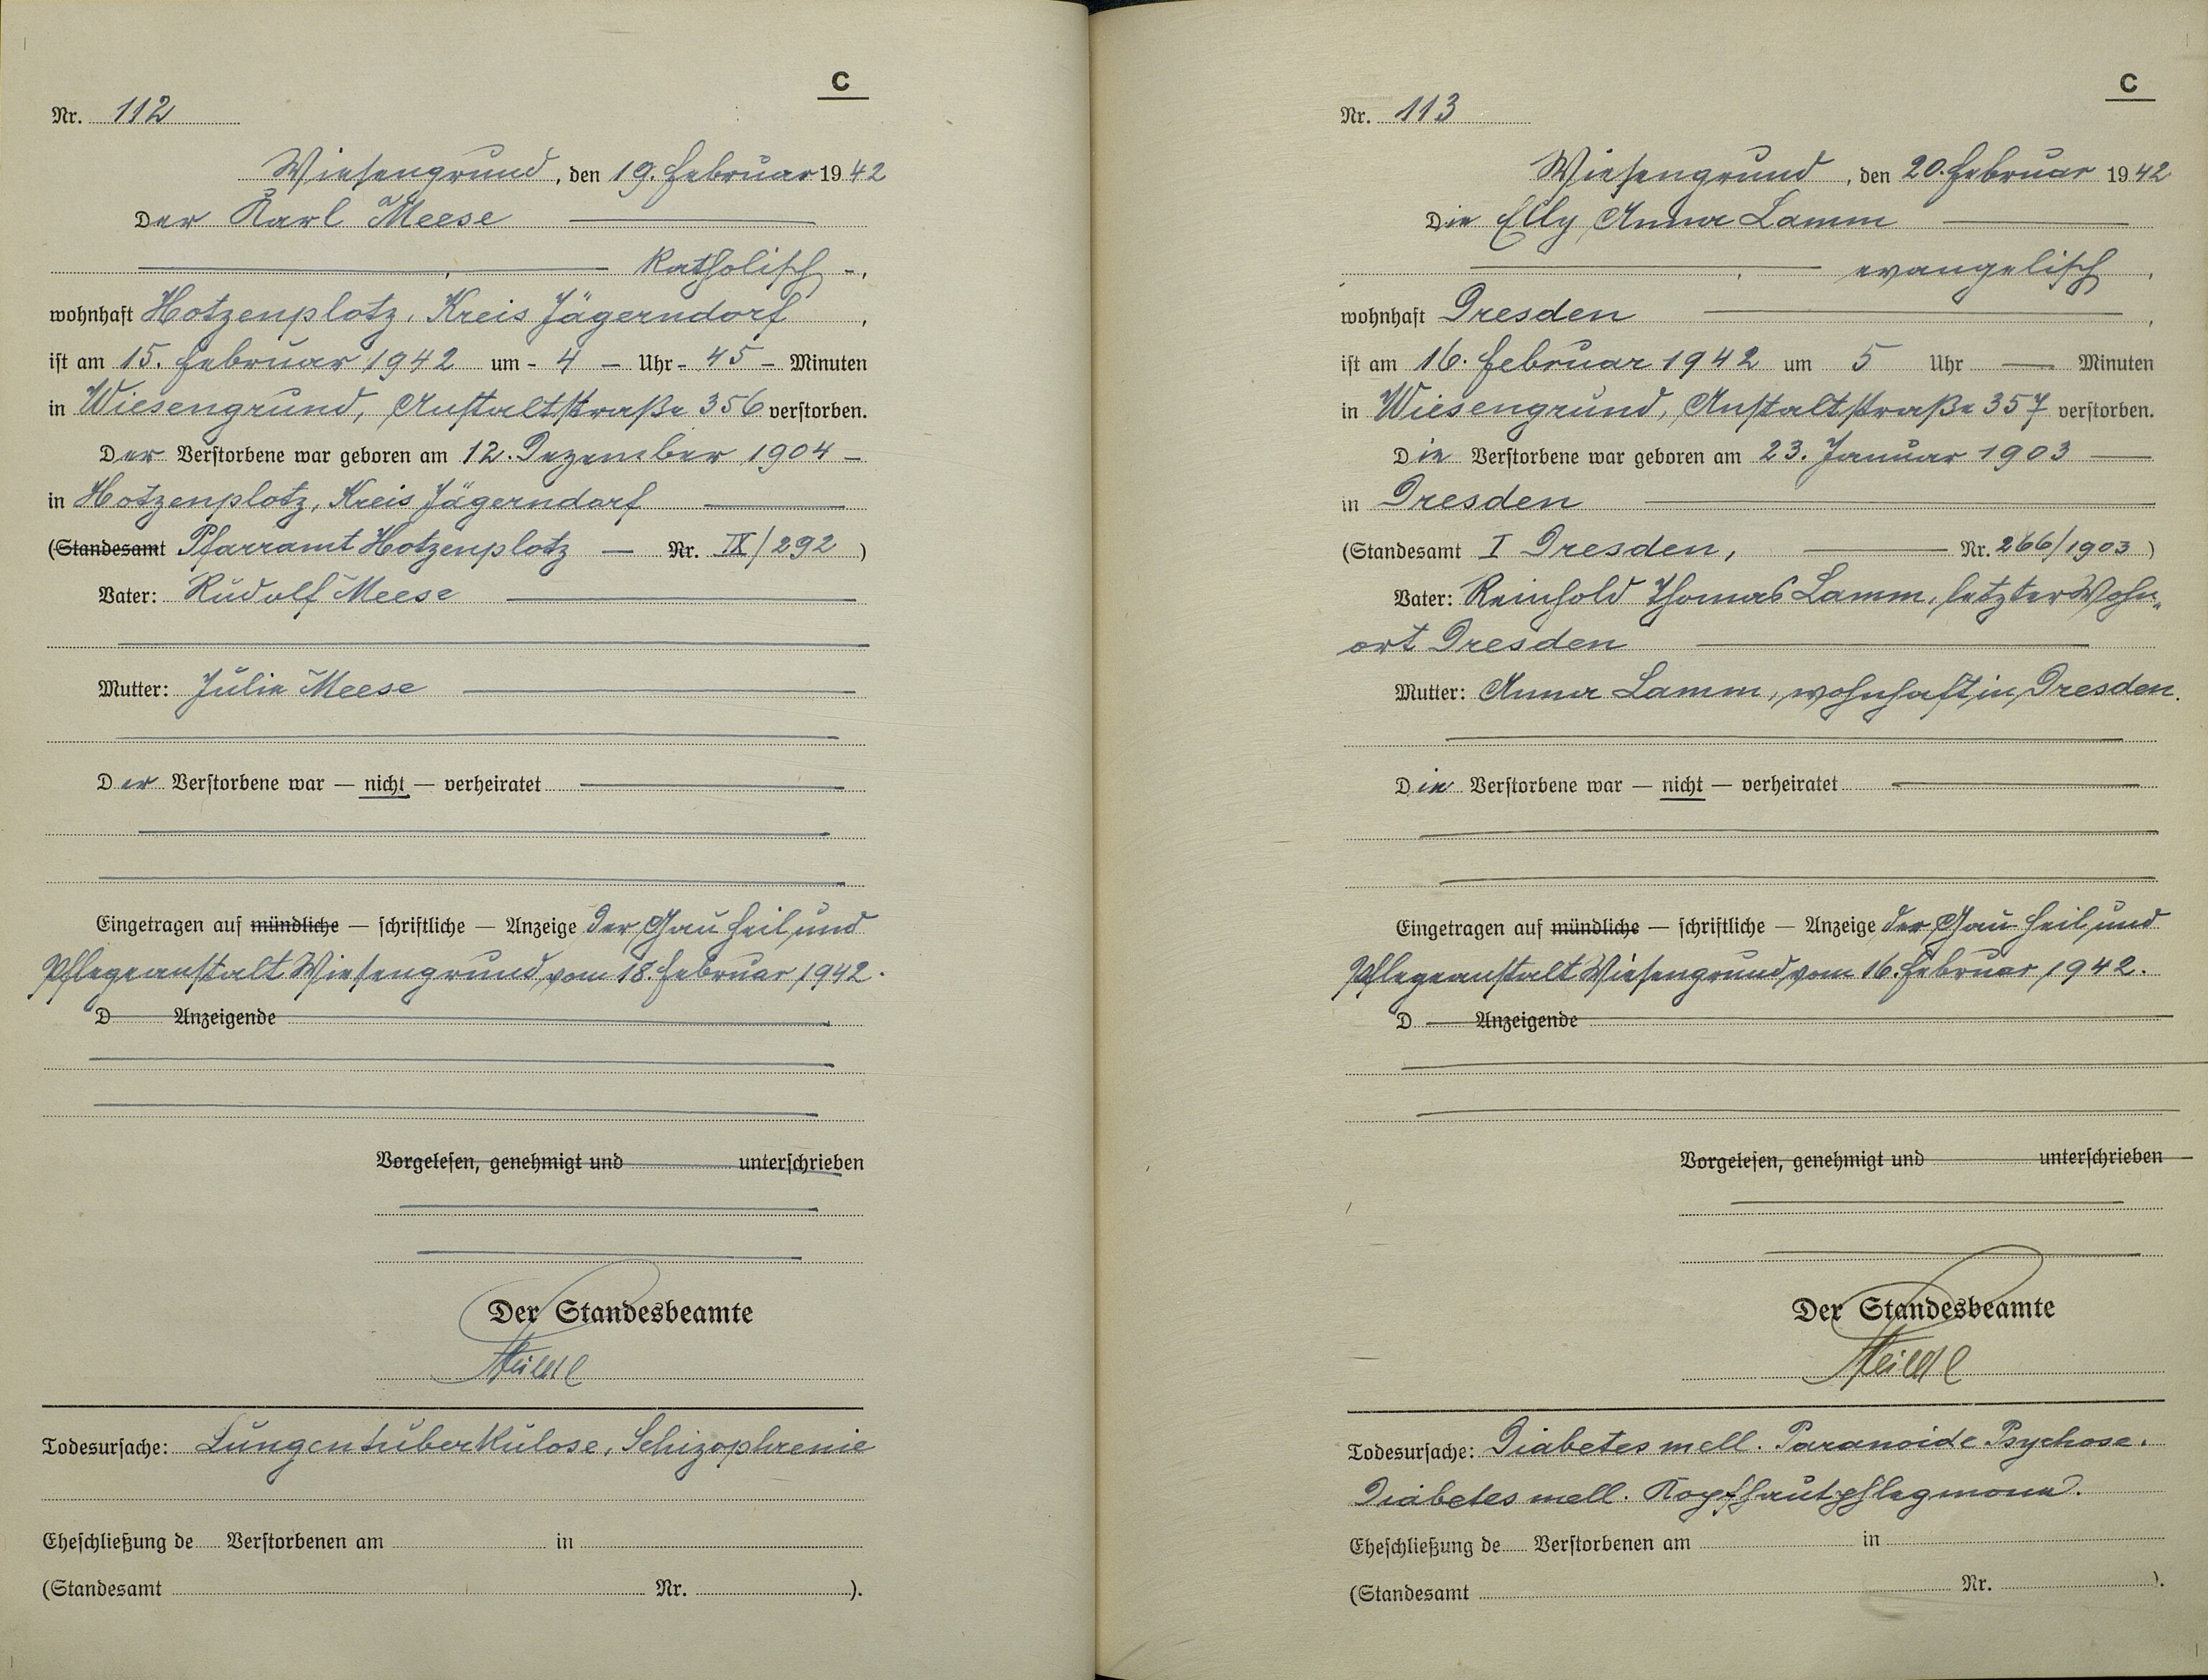 C
Nr. 112
Wiesengrund, den 19. Februar 1942
Der Karl Meese
katholisch,
wohnhaft Hotzenplotz, Kreis Jägerndorf,
ist am 15. Februar 1942 um - 4 - Uhr - 45 - Minuten
in Wiesengrund, Anstaltstraße 356 verstorben.
Der Verstorbene war geboren am 12. Dezember 1904
in Hotzenplotz, Kreis Jägerndorf
(Standesamt Pfarramt Hotzenplotz — Nr. IX/292)
Vater: Rudolf Meese
Mutter: Julie Meese
Der Verstorbene war — nicht — verheiratet
Eingetragen auf mündliche — schriftliche — Anzeige der Gau Heil und
Pflegeanstalt Wiesengrund vom 18. Februar 1942.
D Anzeigende
Vorgelesen, genehmigt und unterschrieben
Der Standesbeamte
Todesursache: Lungentuberkulose, Schizophrenie
Eheschließung de Verstorbenen am in
(Standesamt Nr. ).
C
Nr. 113
Wiesengrund, den 20. Februar 1942
Die Elly Anna Lamm
evangelisch,
wohnhaft Dresden,
ist am 16. Februar 1942 um 5 Uhr — Minuten
in Wiesengrund, Anstaltstraße 357 verstorben.
Die Verstorbene war geboren am 23. Januar 1903
in Dresden
(Standesamt I Dresden, — Nr. 266/1903)
Vater: Reinhold Thomas Lamm, letzter Wohn-
ort Dresden
Mutter: Anna Lamm, wohnhaft in Dresden.
Die Verstorbene war — nicht — verheiratet
Eingetragen auf mündliche — schriftliche — Anzeige der Gau Heil und
Pflegeanstalt Wiesengrund vom 16. Februar 1942.
D Anzeigende
Vorgelesen, genehmigt und unterschrieben
Der Standesbeamte
Todesursache: Diabetes mell. Paranoide Psychose.
Diabetes mell. Kopfhautphlegmone.
Eheschließung de Verstorbenen am in
(Standesamt Nr. ).